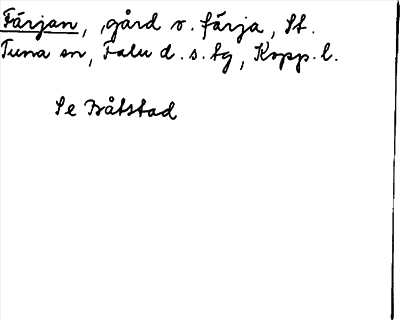 Färjan, gård o. färja, St.
Tuna sn, Falu d. s. tg, Kopp. l.
Se Båtstad